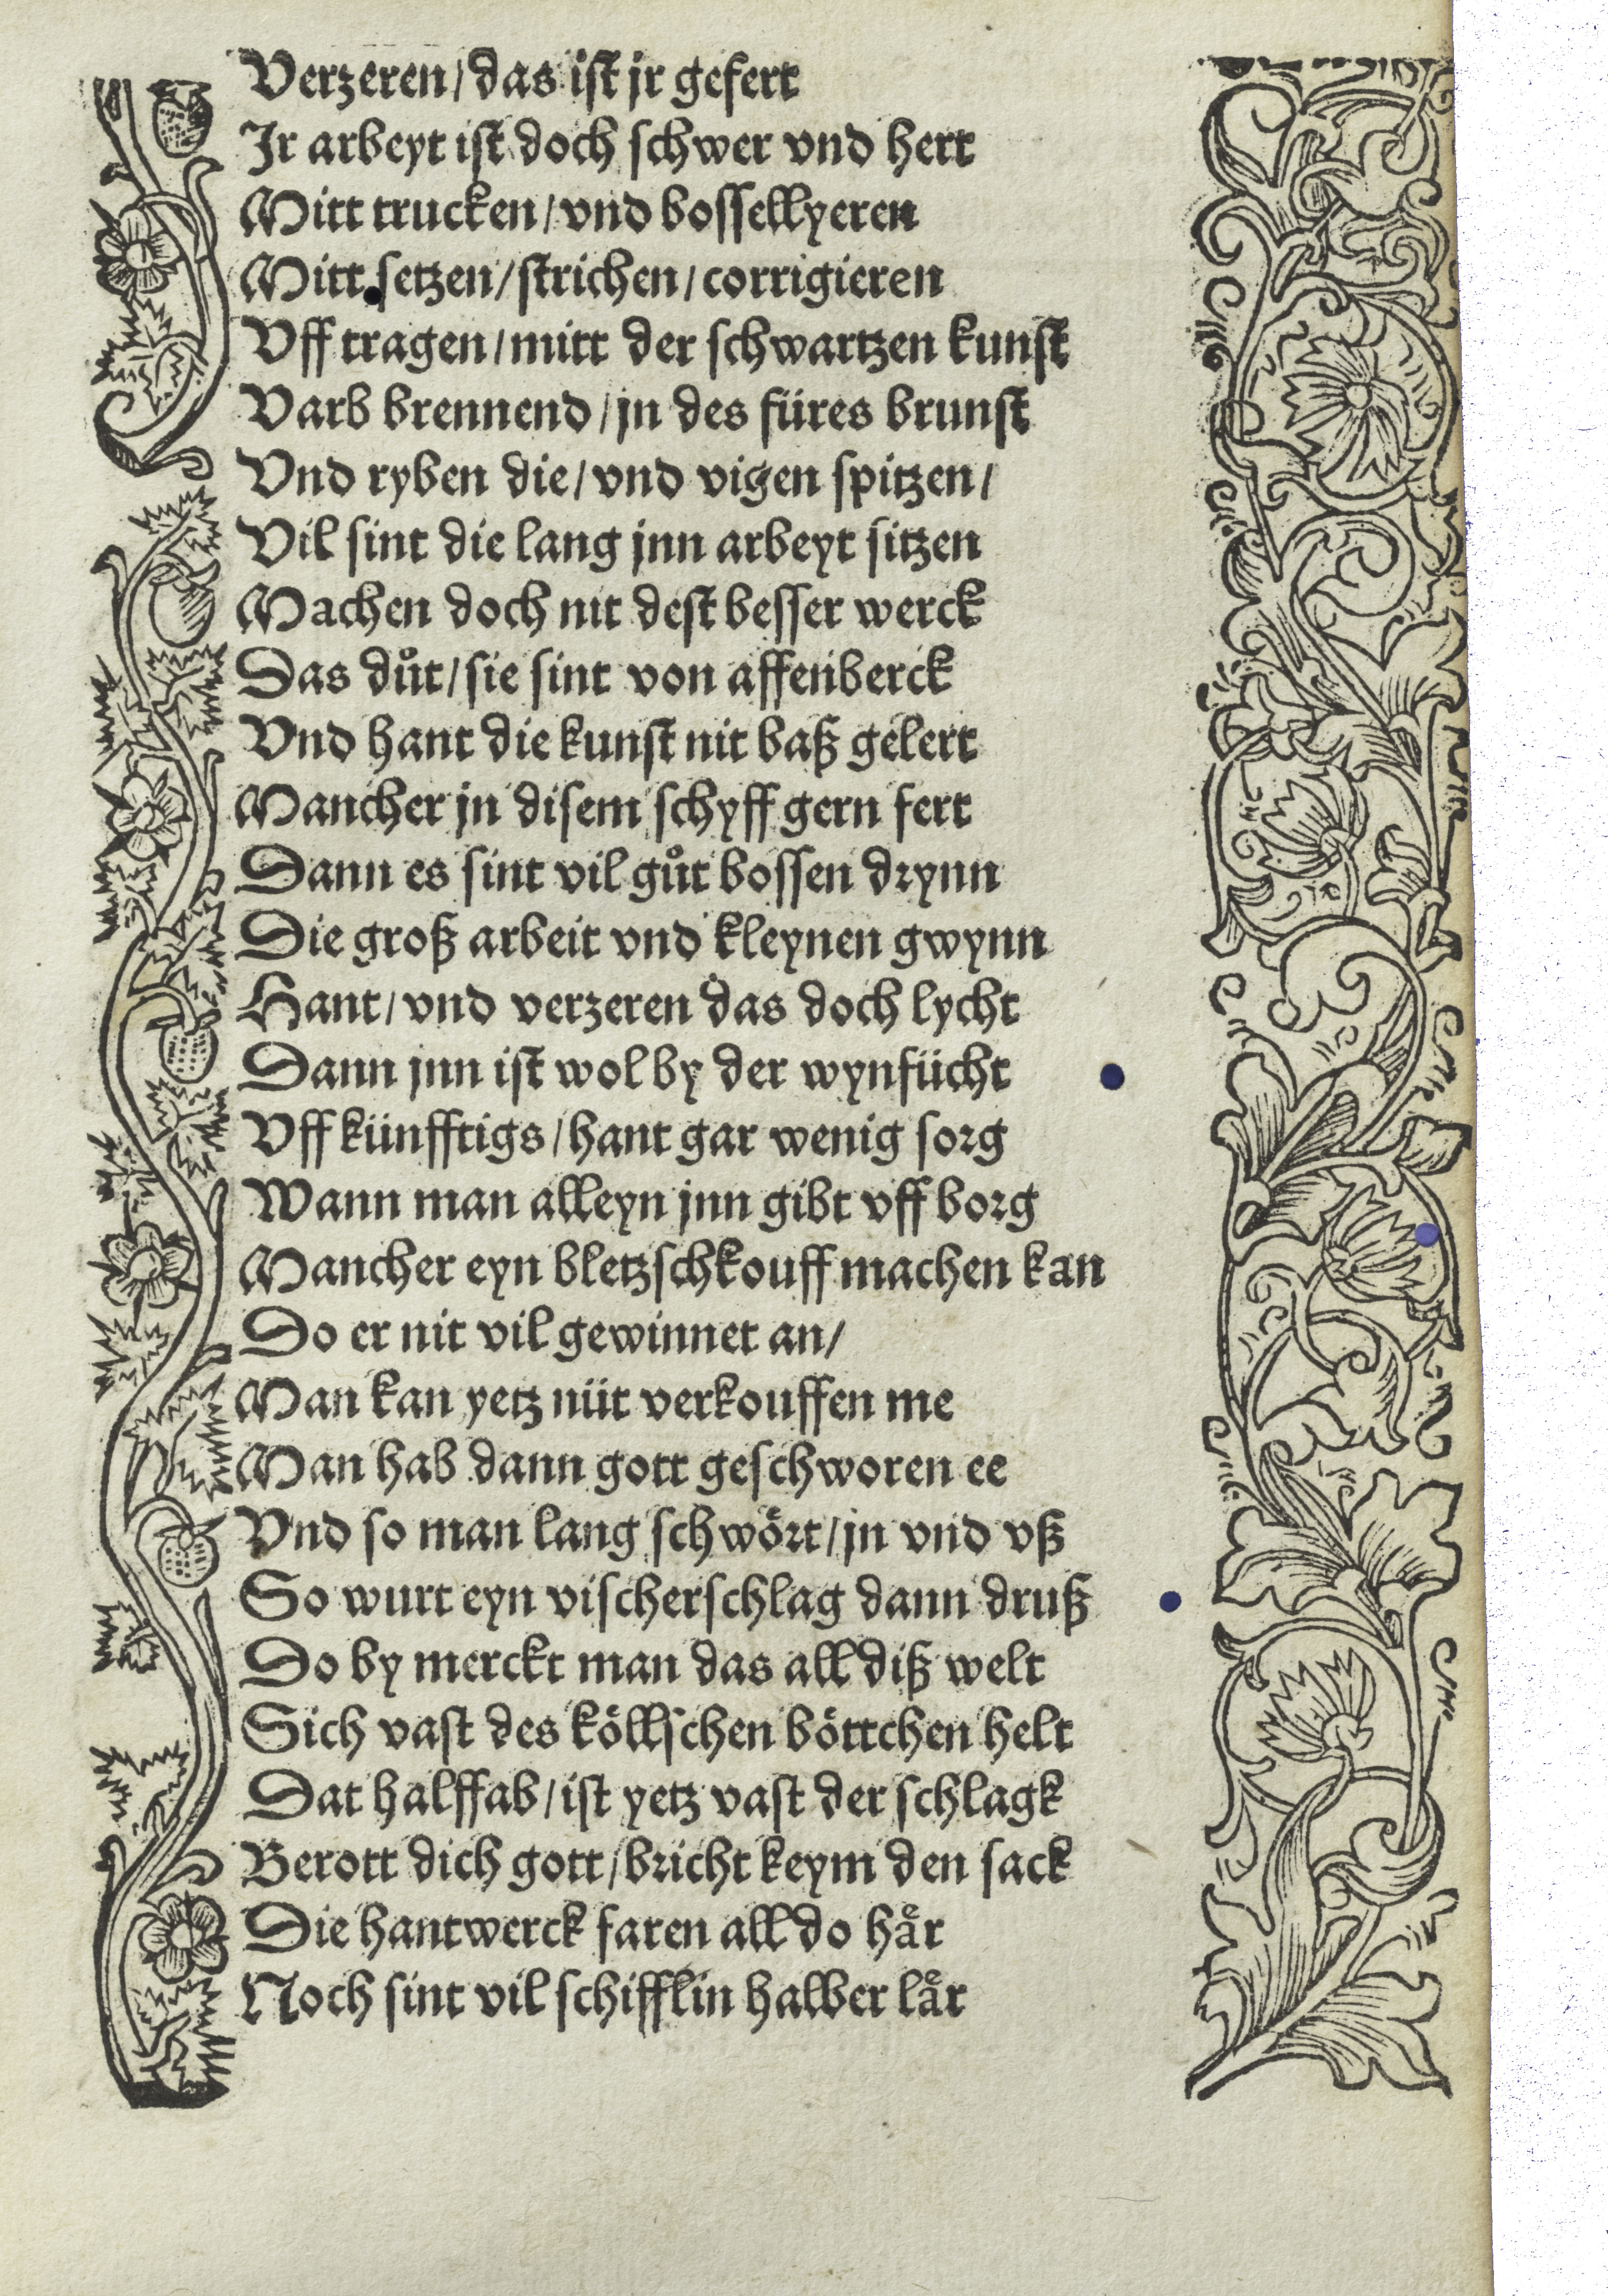 Verzeren/das ist jr gefert
Jr arbeyt ist doch schwer vnd hert
Mitt trucken/vnd bossellyeren
Mitt setzen/strichen/corrigieren
Vff tragen/mitt der schwartzen kunst
Varb brennend/jn des füres brunst
Vnd ryben die/vnd vigen spitzen/
Vil sint die lang jnn arbeyt sitzen
Machen doch nit dest besser werck
Das důt/sie sint von affenberck
Vnd hant die kunst nit baß gelert
Mancher jn disem schyff gern fert
Dann es sint vil gůt bossen drynn
Die groß arbeit vnd kleynen gwynn
Hant/vnd verzeren das doch lycht
Dann jnn ist wol by der wynfücht
Vff künfftigs/hant gar wenig sorg
Wann man alleyn jnn gibt vff borg
Mancher eyn bletzschkouff machen kan
Do er nit vil gewinnet an/
Man kan yetz nüt verkouffen me
Man hab dann gott geschworen ee
Vnd so man lang schwört/jn vnd vß
So wurt eyn vischerschlag dann druß
Do by merckt man das all diß welt
Sich vast des köllschen böttchen helt
Dat halff ab/ist yetz vast der schlagk
Berott dich gott/bricht keym den sack
Die hantwerck faren all do haͤr
Noch sint vil schifflin halber laͤr